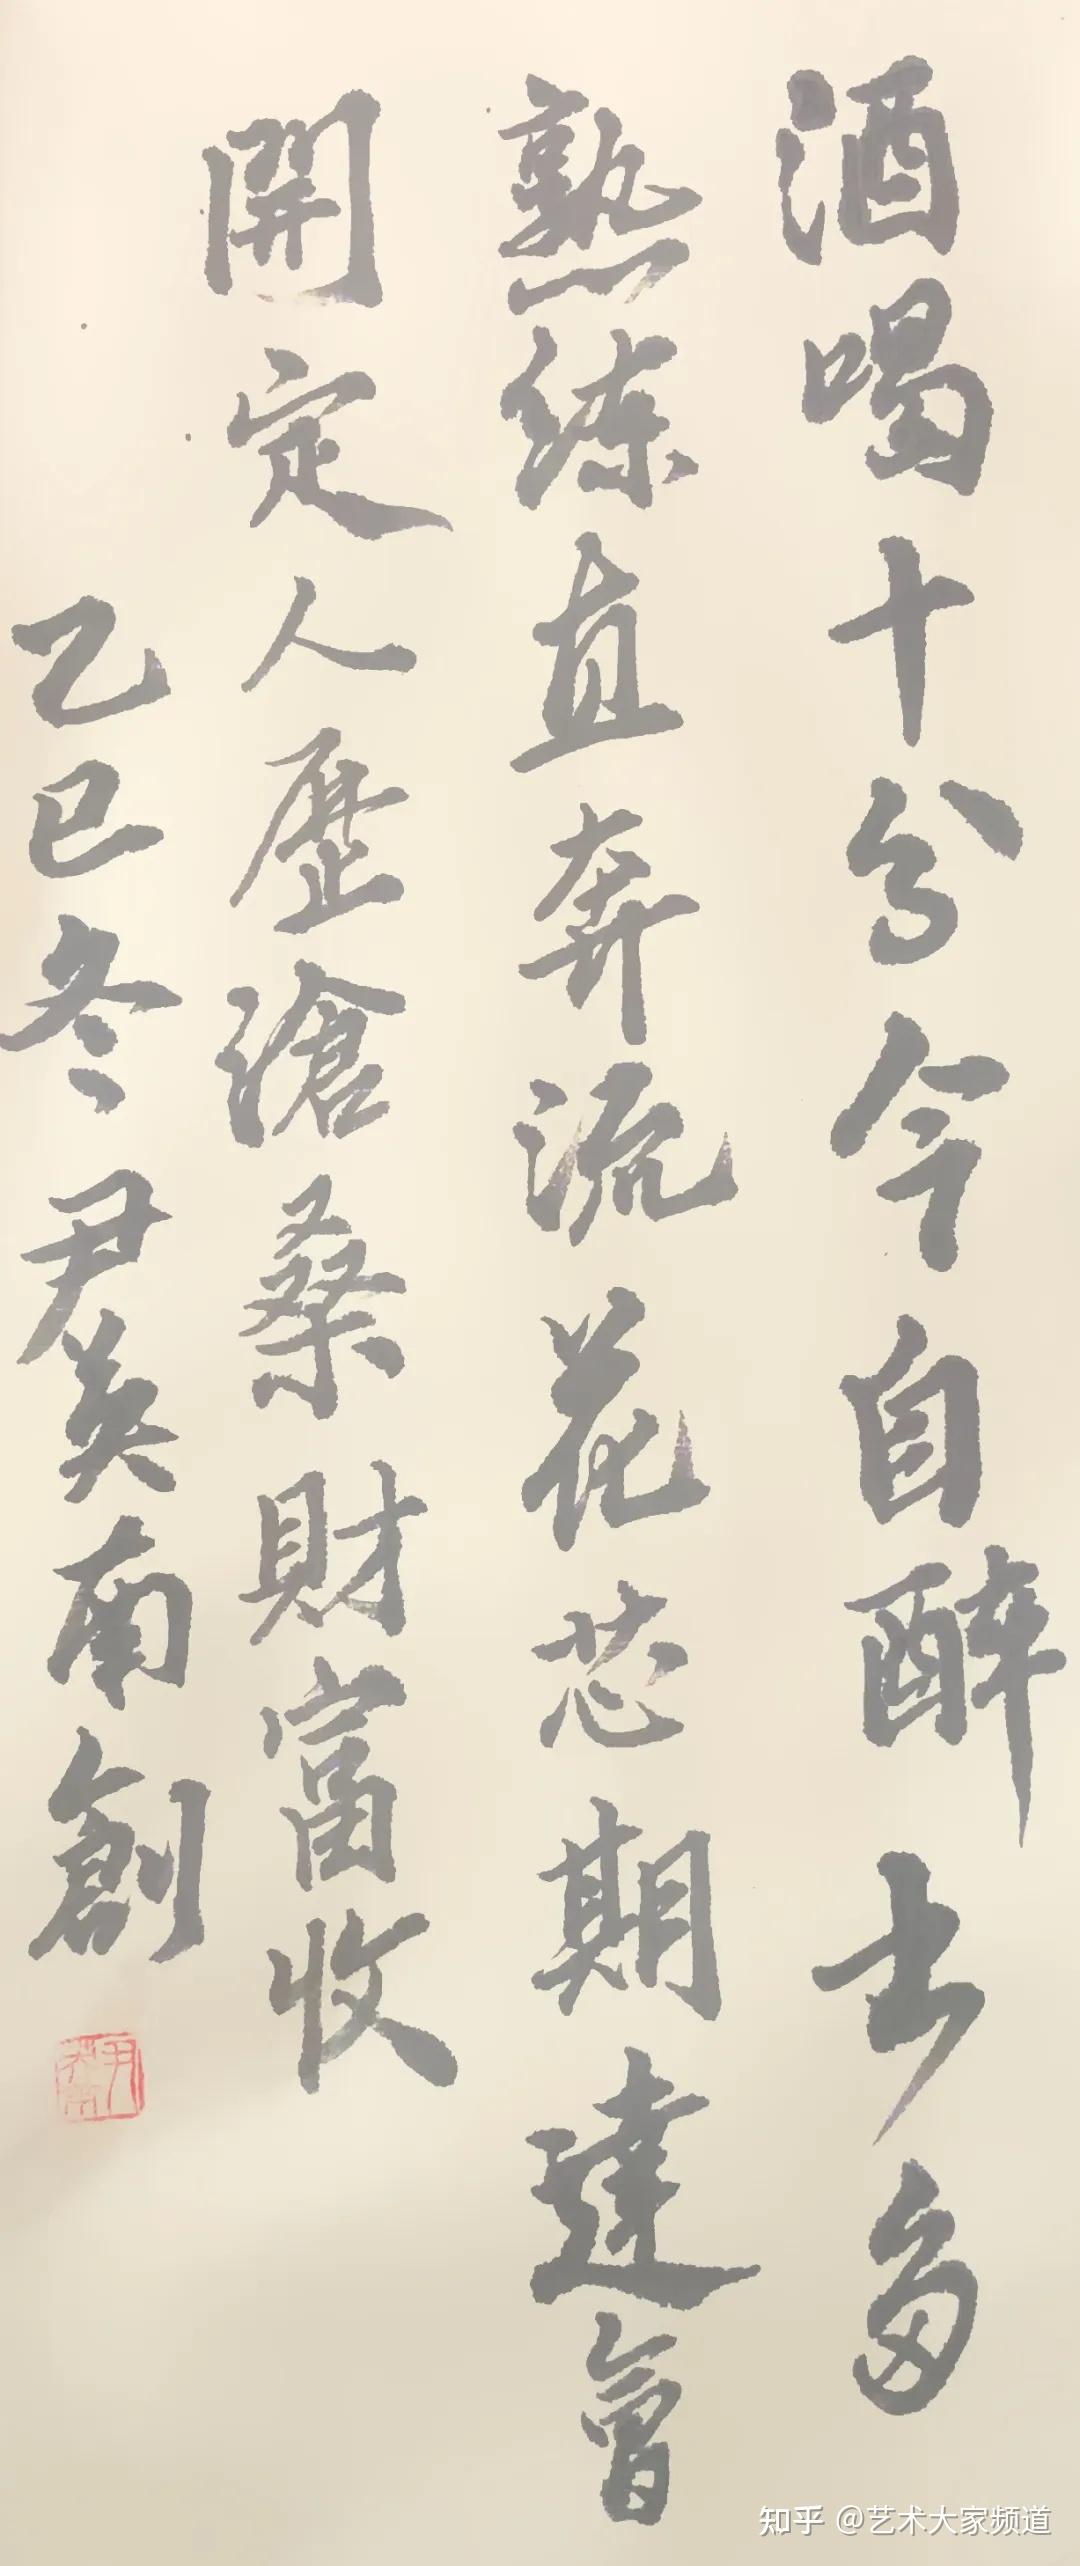 酒喝十分今自醉士多
熟练直奔流花芯期達會
開定人歷滄桑財富收
乙巳冬尹英南創
知乎 @艺术大家频道